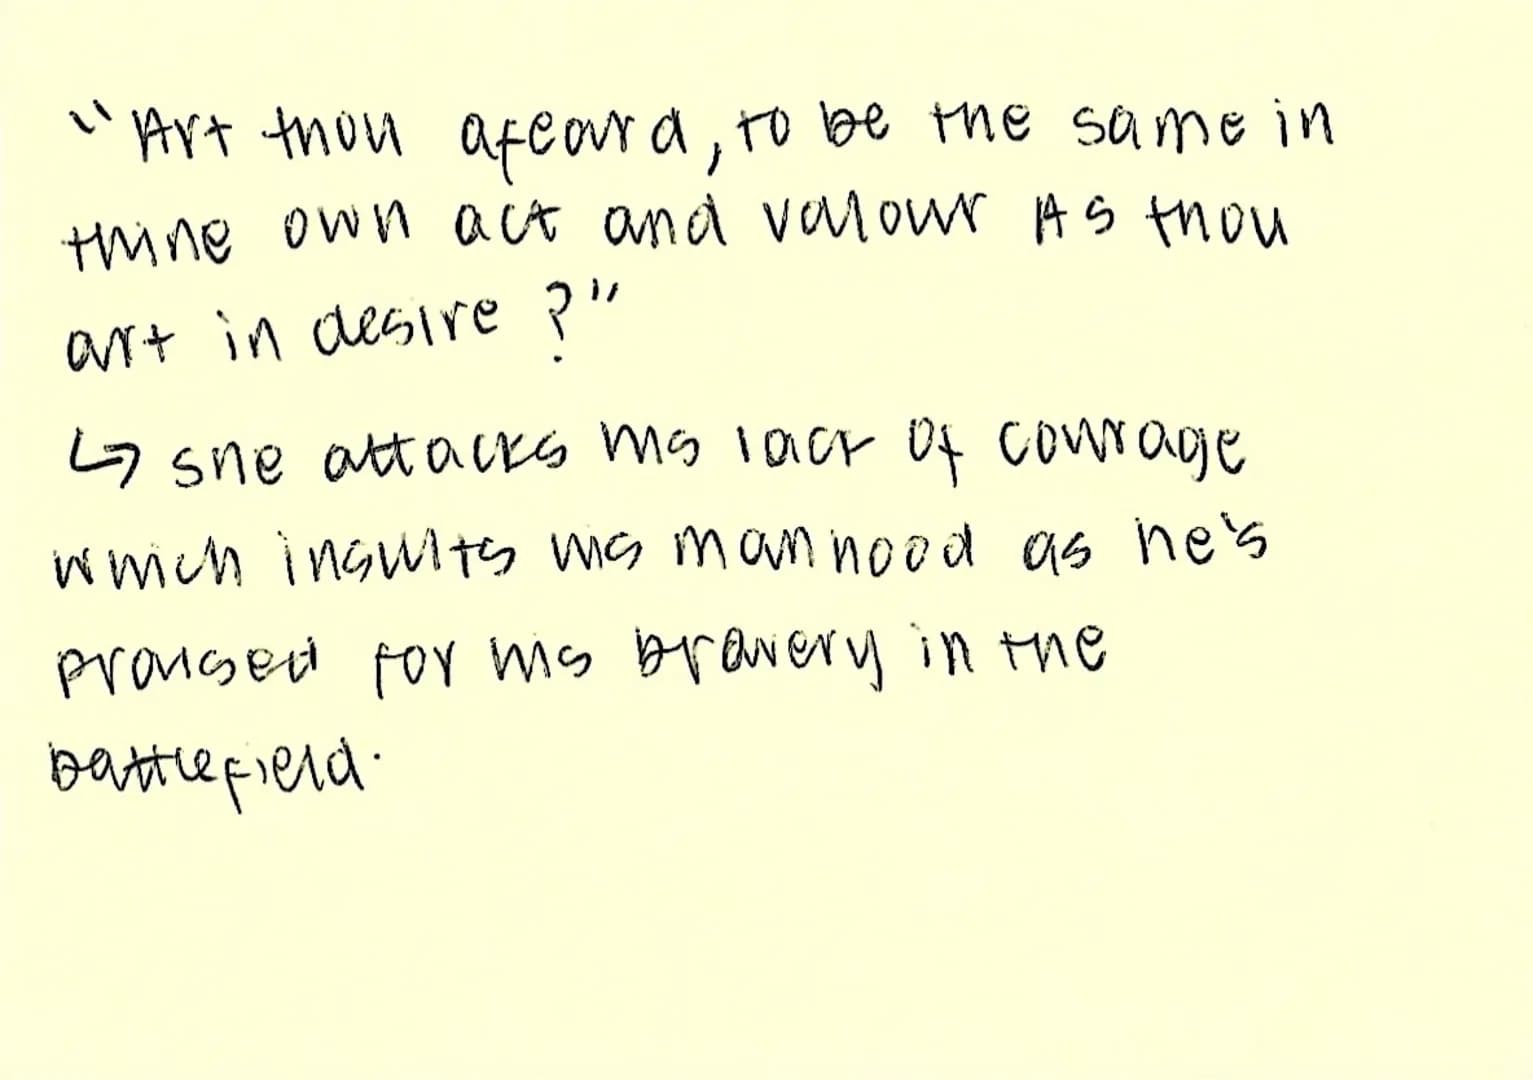 "Art thou afeard, to be the same in
thine own act and valour As thou
art in desire ?"
↳ she attacks his lack of courage
which insults his manhood as he's
praised for his bravery in the
battlefield.